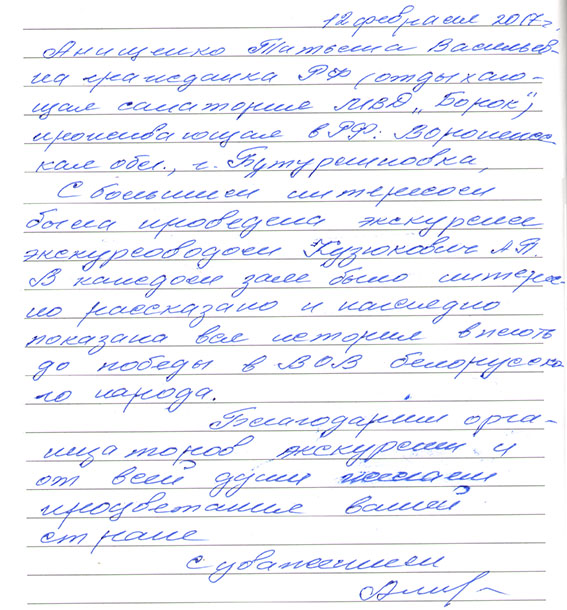 12 февраля 2017 г.
Анищенко Татьяна Васильев-
на гражданка РФ (отдыхаю-
щая санатория МВД „Борок")
проживающая в РФ: Воронежс
кая обл., г. Бутурлиновка,
С большим интересом
была проведена экскурсия
экскурсоводом Кузюкович А.П.
В каждом зале было интерес-
но рассказано и наглядно
показана вся история вплоть
до победы в ВОВ белорусско
го народа.
Благодарим орга-
низаторов экскурсии и
от всей души желаем
процветания вашей
стране
С уважением